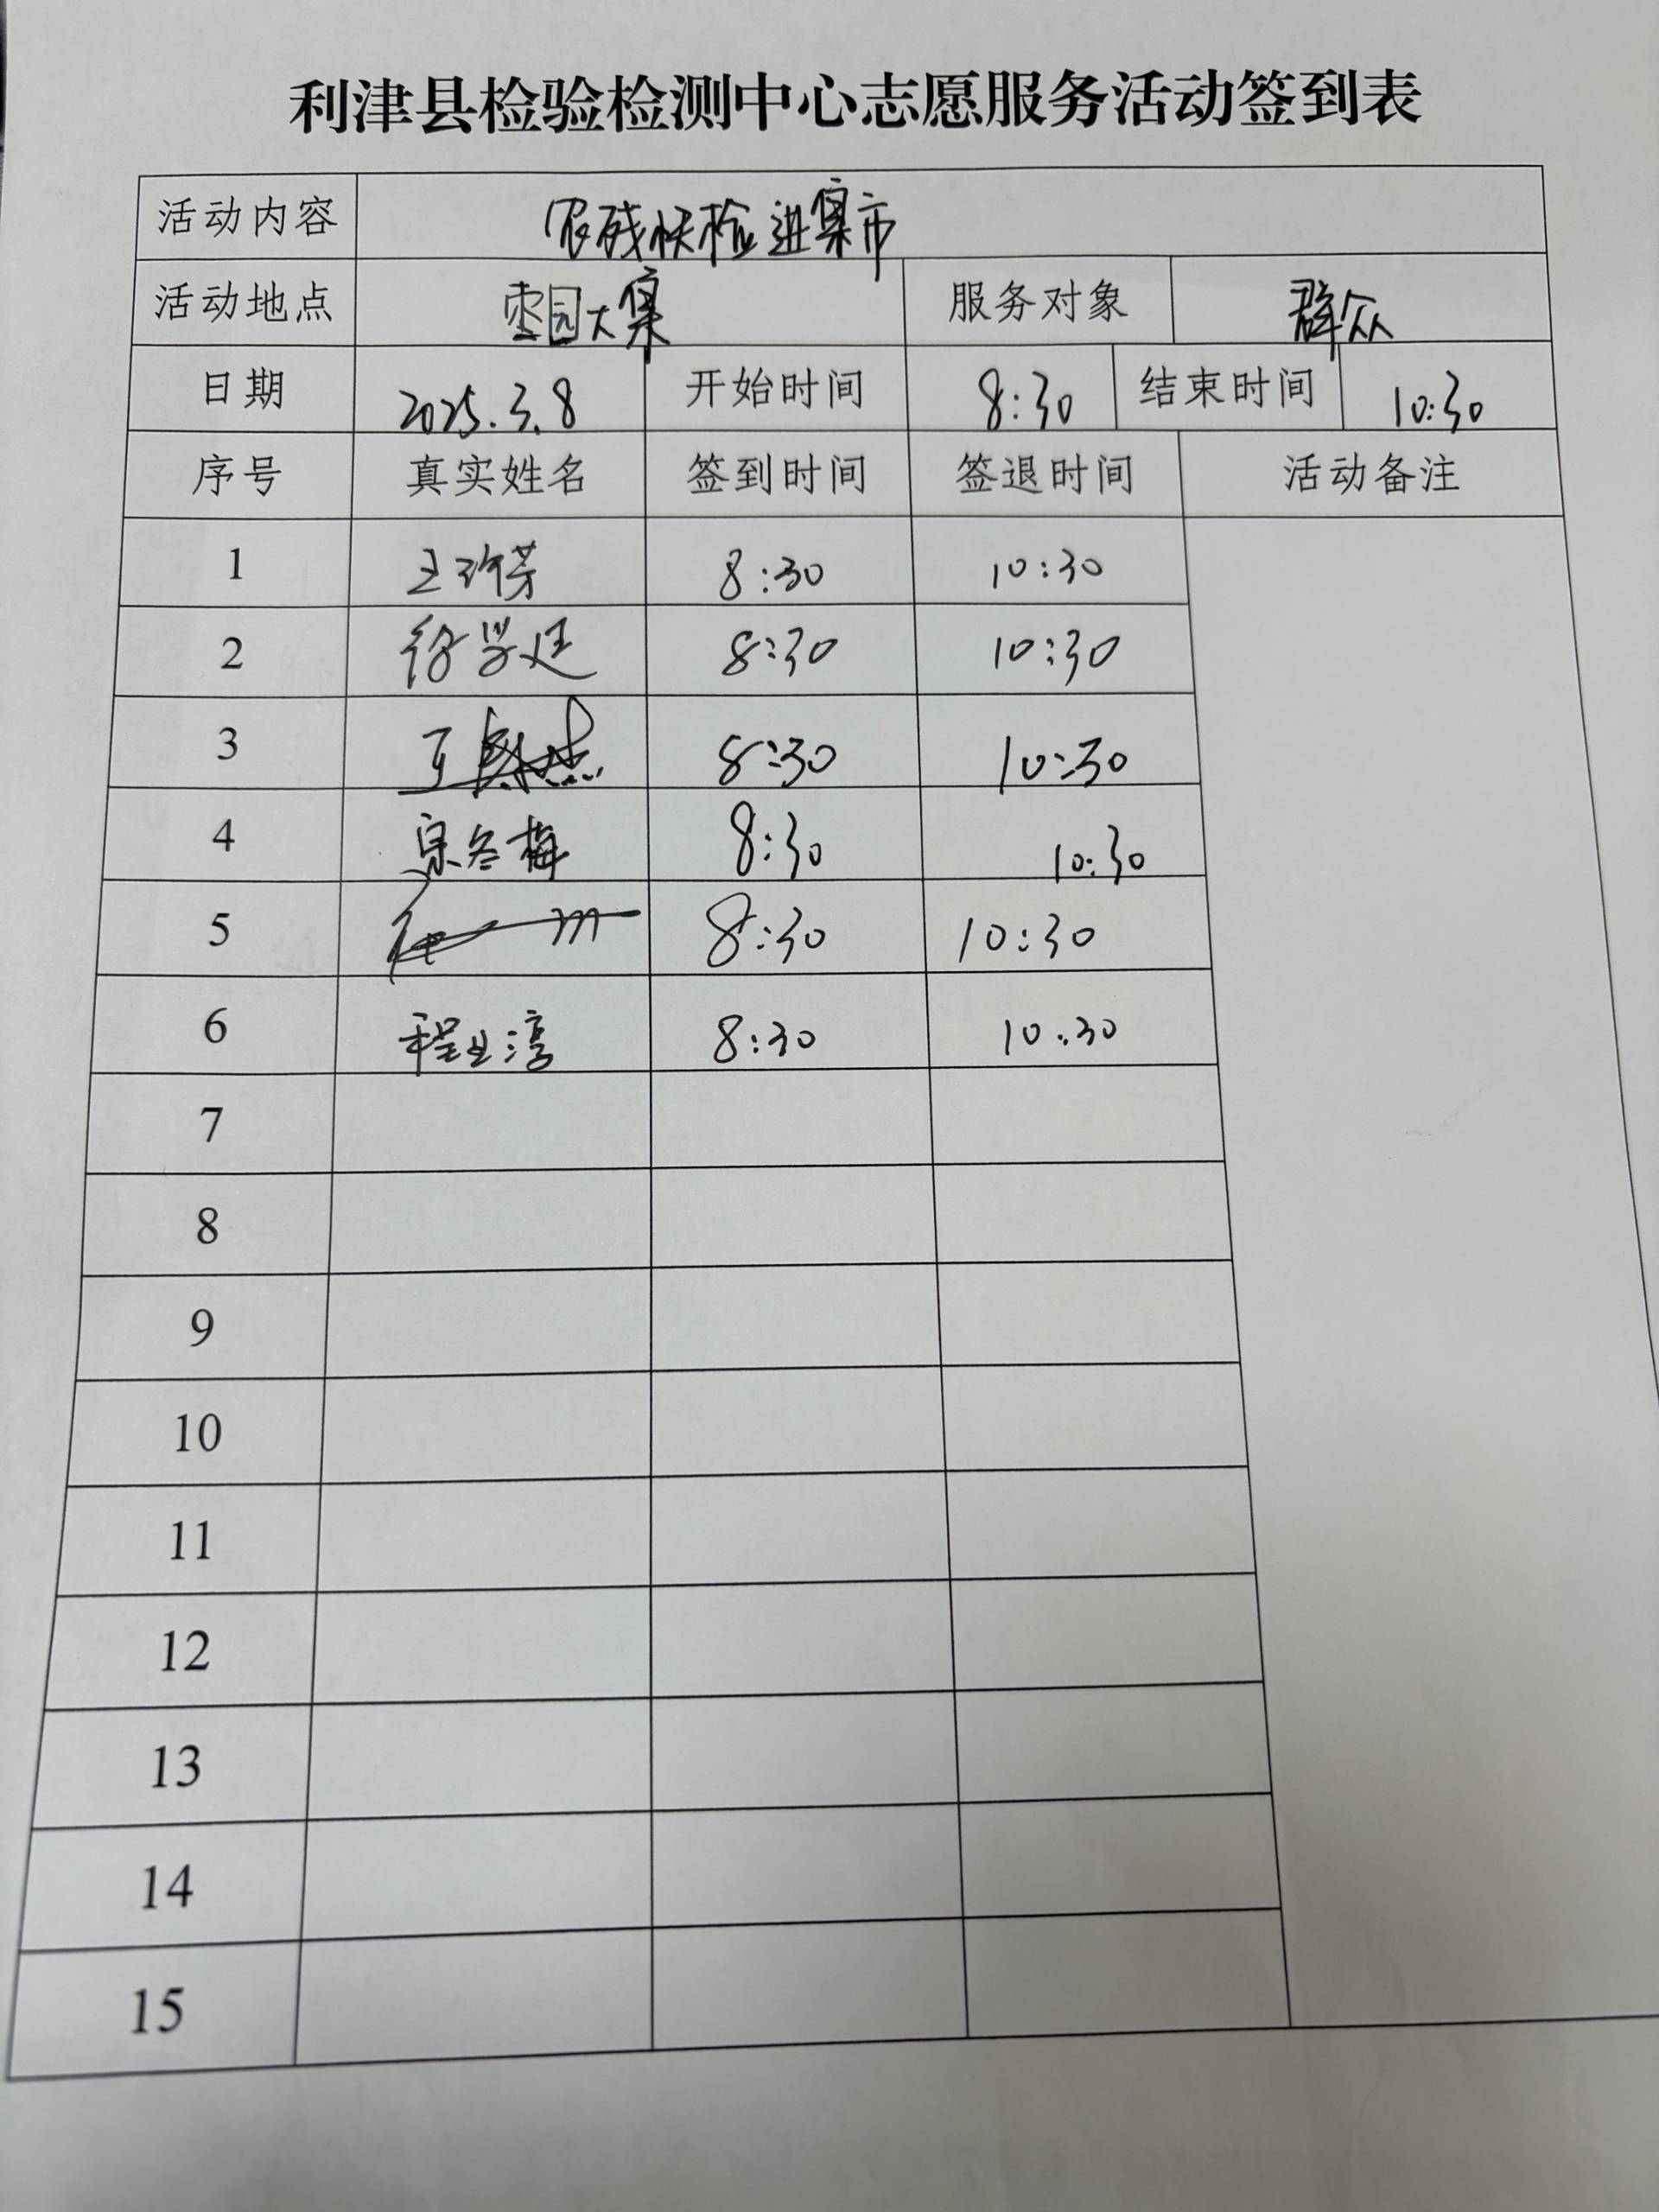 利津县检验检测中心志愿服务活动签到表
活动内容 农残快检进集市
活动地点 枣园大集 服务对象 群众
日期 2025.3.8 开始时间 8:30 结束时间 10:30
序号 真实姓名 签到时间 签退时间 活动备注
1 王 芳 8:30 10:30
2 徐学廷 8:30 10:30
3 8:30 10:30
4 宋冬梅 8:30 10:30
5 8:30 10:30
6 程 淳 8:30 10:30
7
8
9
10
11
12
13
14
15